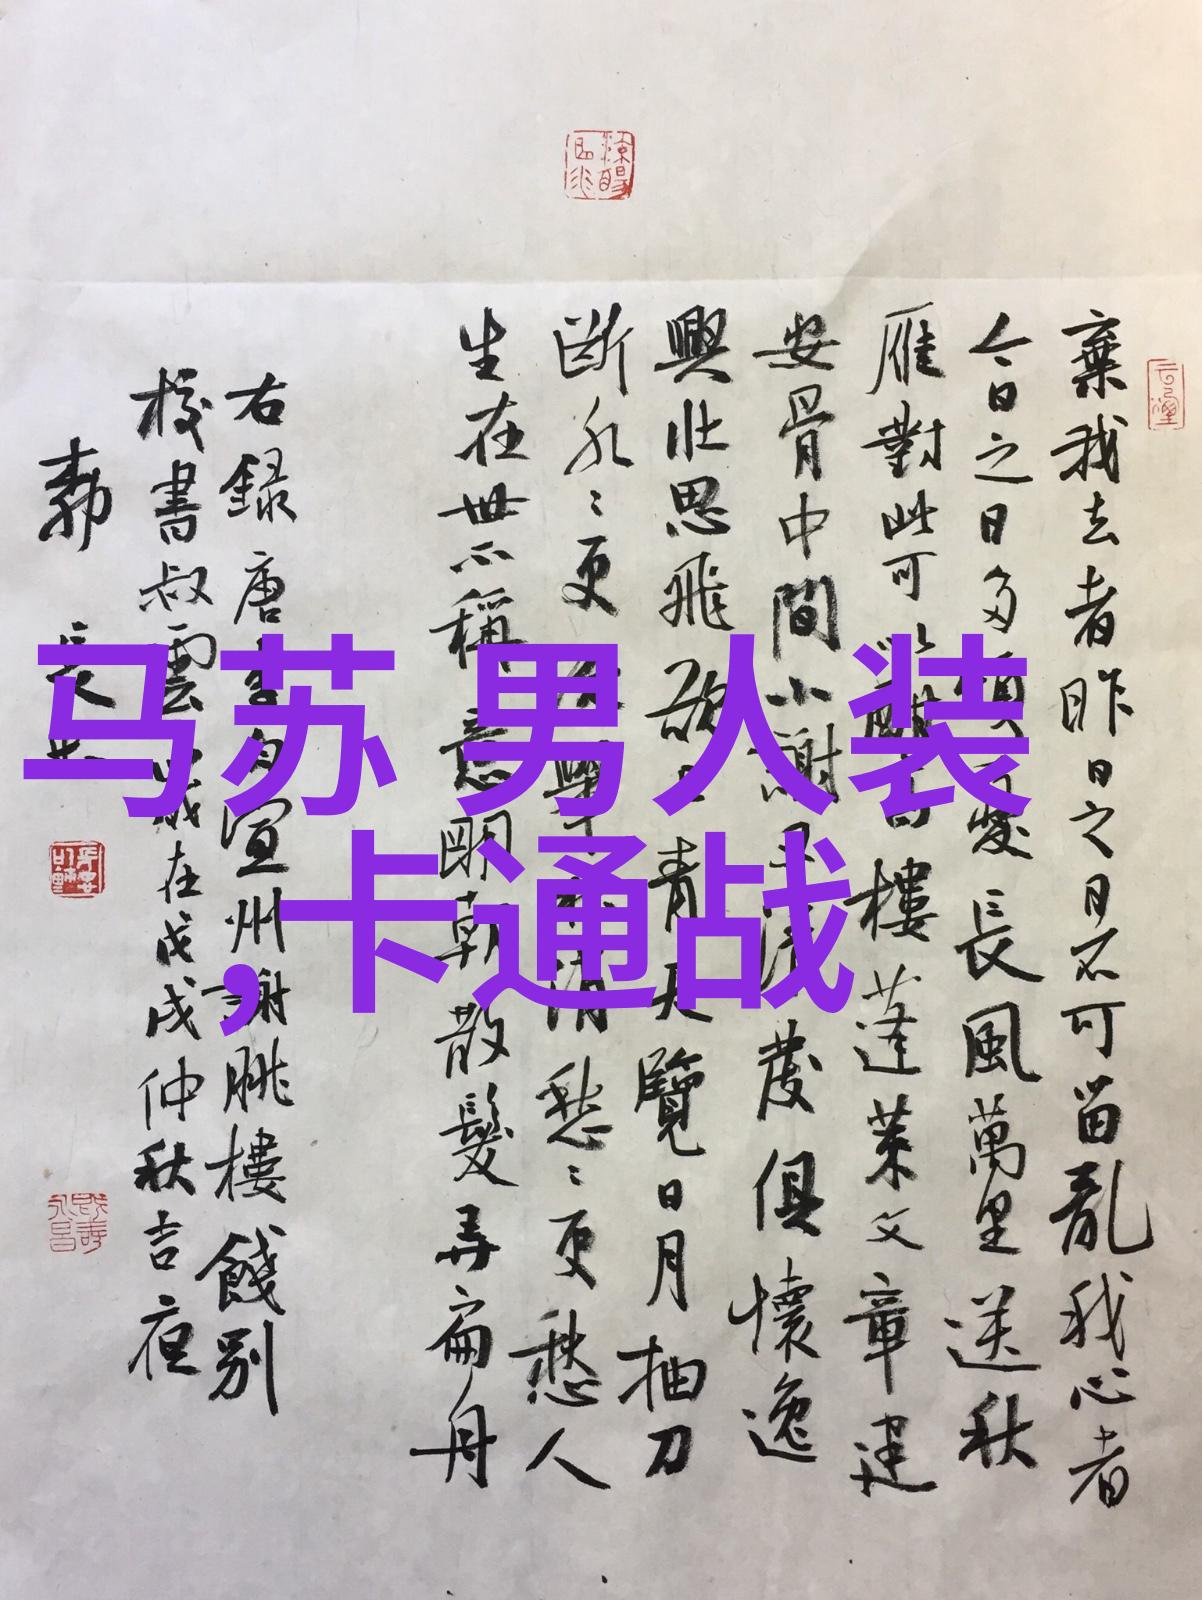 马苏 男人装
，卡通战
棄我去者昨日之日不可留亂我心者
今日之日多煩憂長風萬里送秋
雁對此可以酣高樓蓬萊文章建
安骨中間小謝又清發俱懷逸
興壯思飛欲上青天覽日月抽刀
斷水〻更舉杯消愁〻更愁人
生在世不稱意明朝散髮弄扁舟
右録唐李白宣州謝朓樓餞別
校書叔雲歲在戊戌仲秋吉夜